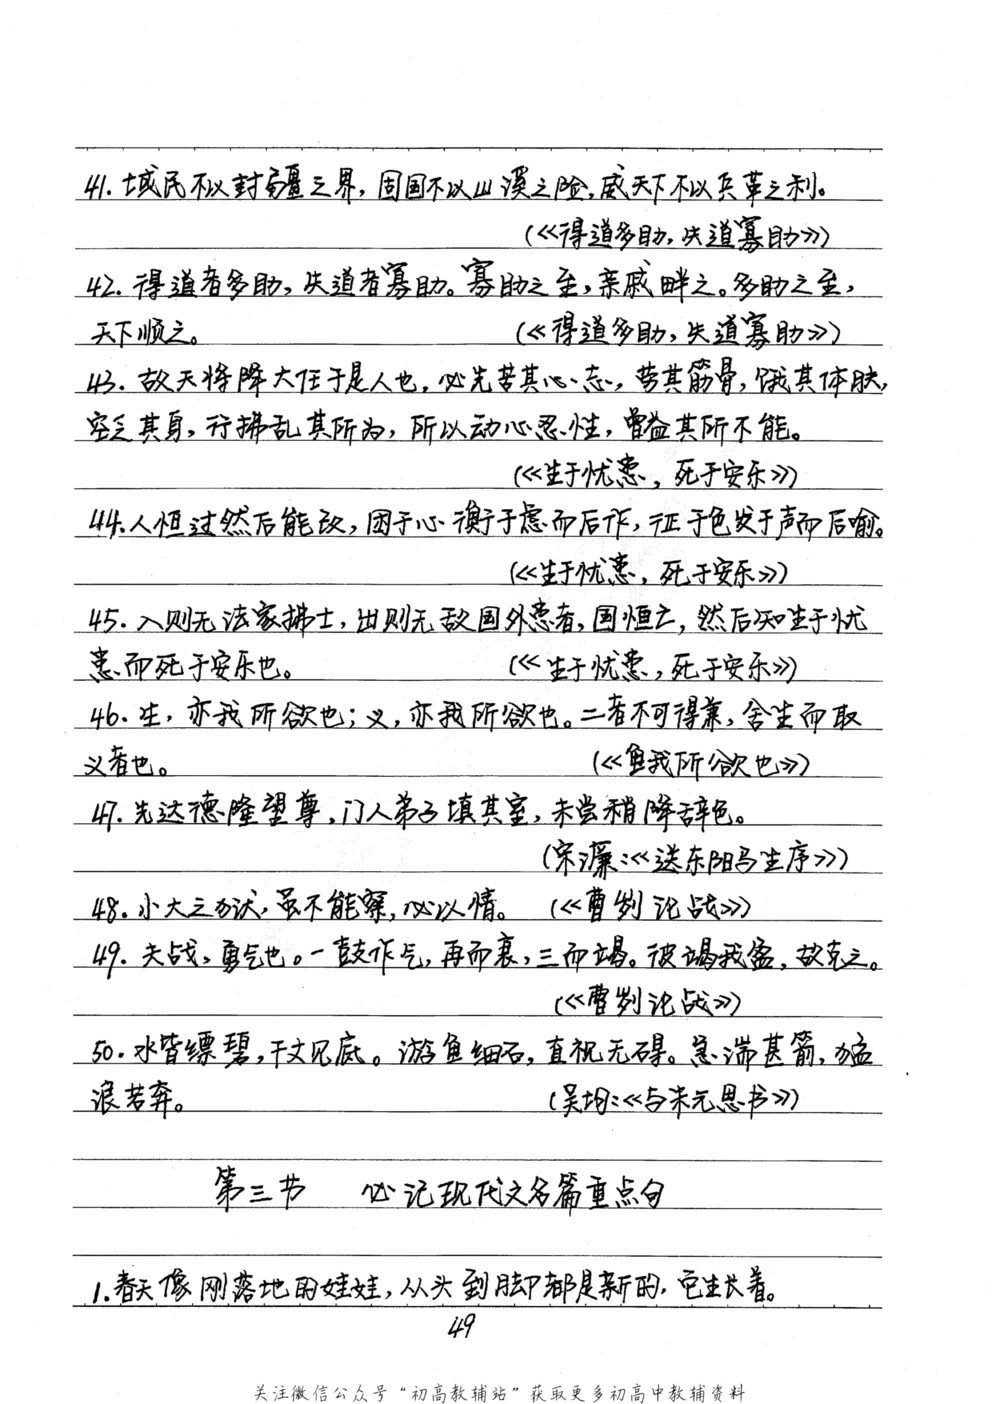 41. 域民不以封疆之界，固国不以山溪之险，威天下不以兵革之利。
(《得道多助，失道寡助》)
42. 得道者多助，失道者寡助。寡助之至，亲戚畔之。多助之至，
天下顺之。 (《得道多助，失道寡助》)
43. 故天将降大任于是人也，必先苦其心志，劳其筋骨，饿其体肤，
空乏其身，行拂乱其所为，所以动心忍性，曾益其所不能。
(《生于忧患，死于安乐》)
44. 人恒过然后能改，困于心衡于虑而后作，征于色发于声而后喻。
(《生于忧患，死于安乐》)
45. 入则无法家拂士，出则无敌国外患者，国恒亡，然后知生于忧
患而死于安乐也。 (《生于忧患，死于安乐》)
46. 生，亦我所欲也；义，亦我所欲也。二者不可得兼，舍生而取
义者也。 (《鱼我所欲也》)
47. 先达德隆望尊，门人弟子填其室，未尝稍降辞色。
(宋濂：《送东阳马生序》)
48. 小大之狱，虽不能察，必以情。 (《曹刿论战》)
49. 夫战，勇气也。一鼓作气，再而衰，三而竭。彼竭我盈，故克之。
(《曹刿论战》)
50. 水皆缥碧，千丈见底。游鱼细石，直视无碍。急湍甚箭，猛
浪若奔。 (吴均：《与朱元思书》)
第三节 必记现代文名篇重点句
1. 春天像刚落地的娃娃，从头到脚都是新的，它生长着。
49
关注微信公众号“初高教辅站”获取更多初高中教辅资料